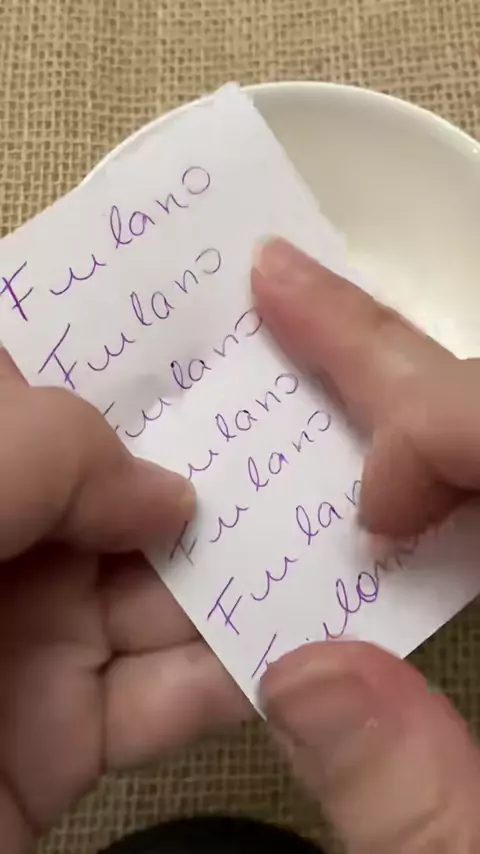 Fulano
Fulano
Fulano
Fulano
Fulano
Fulan
Fulano